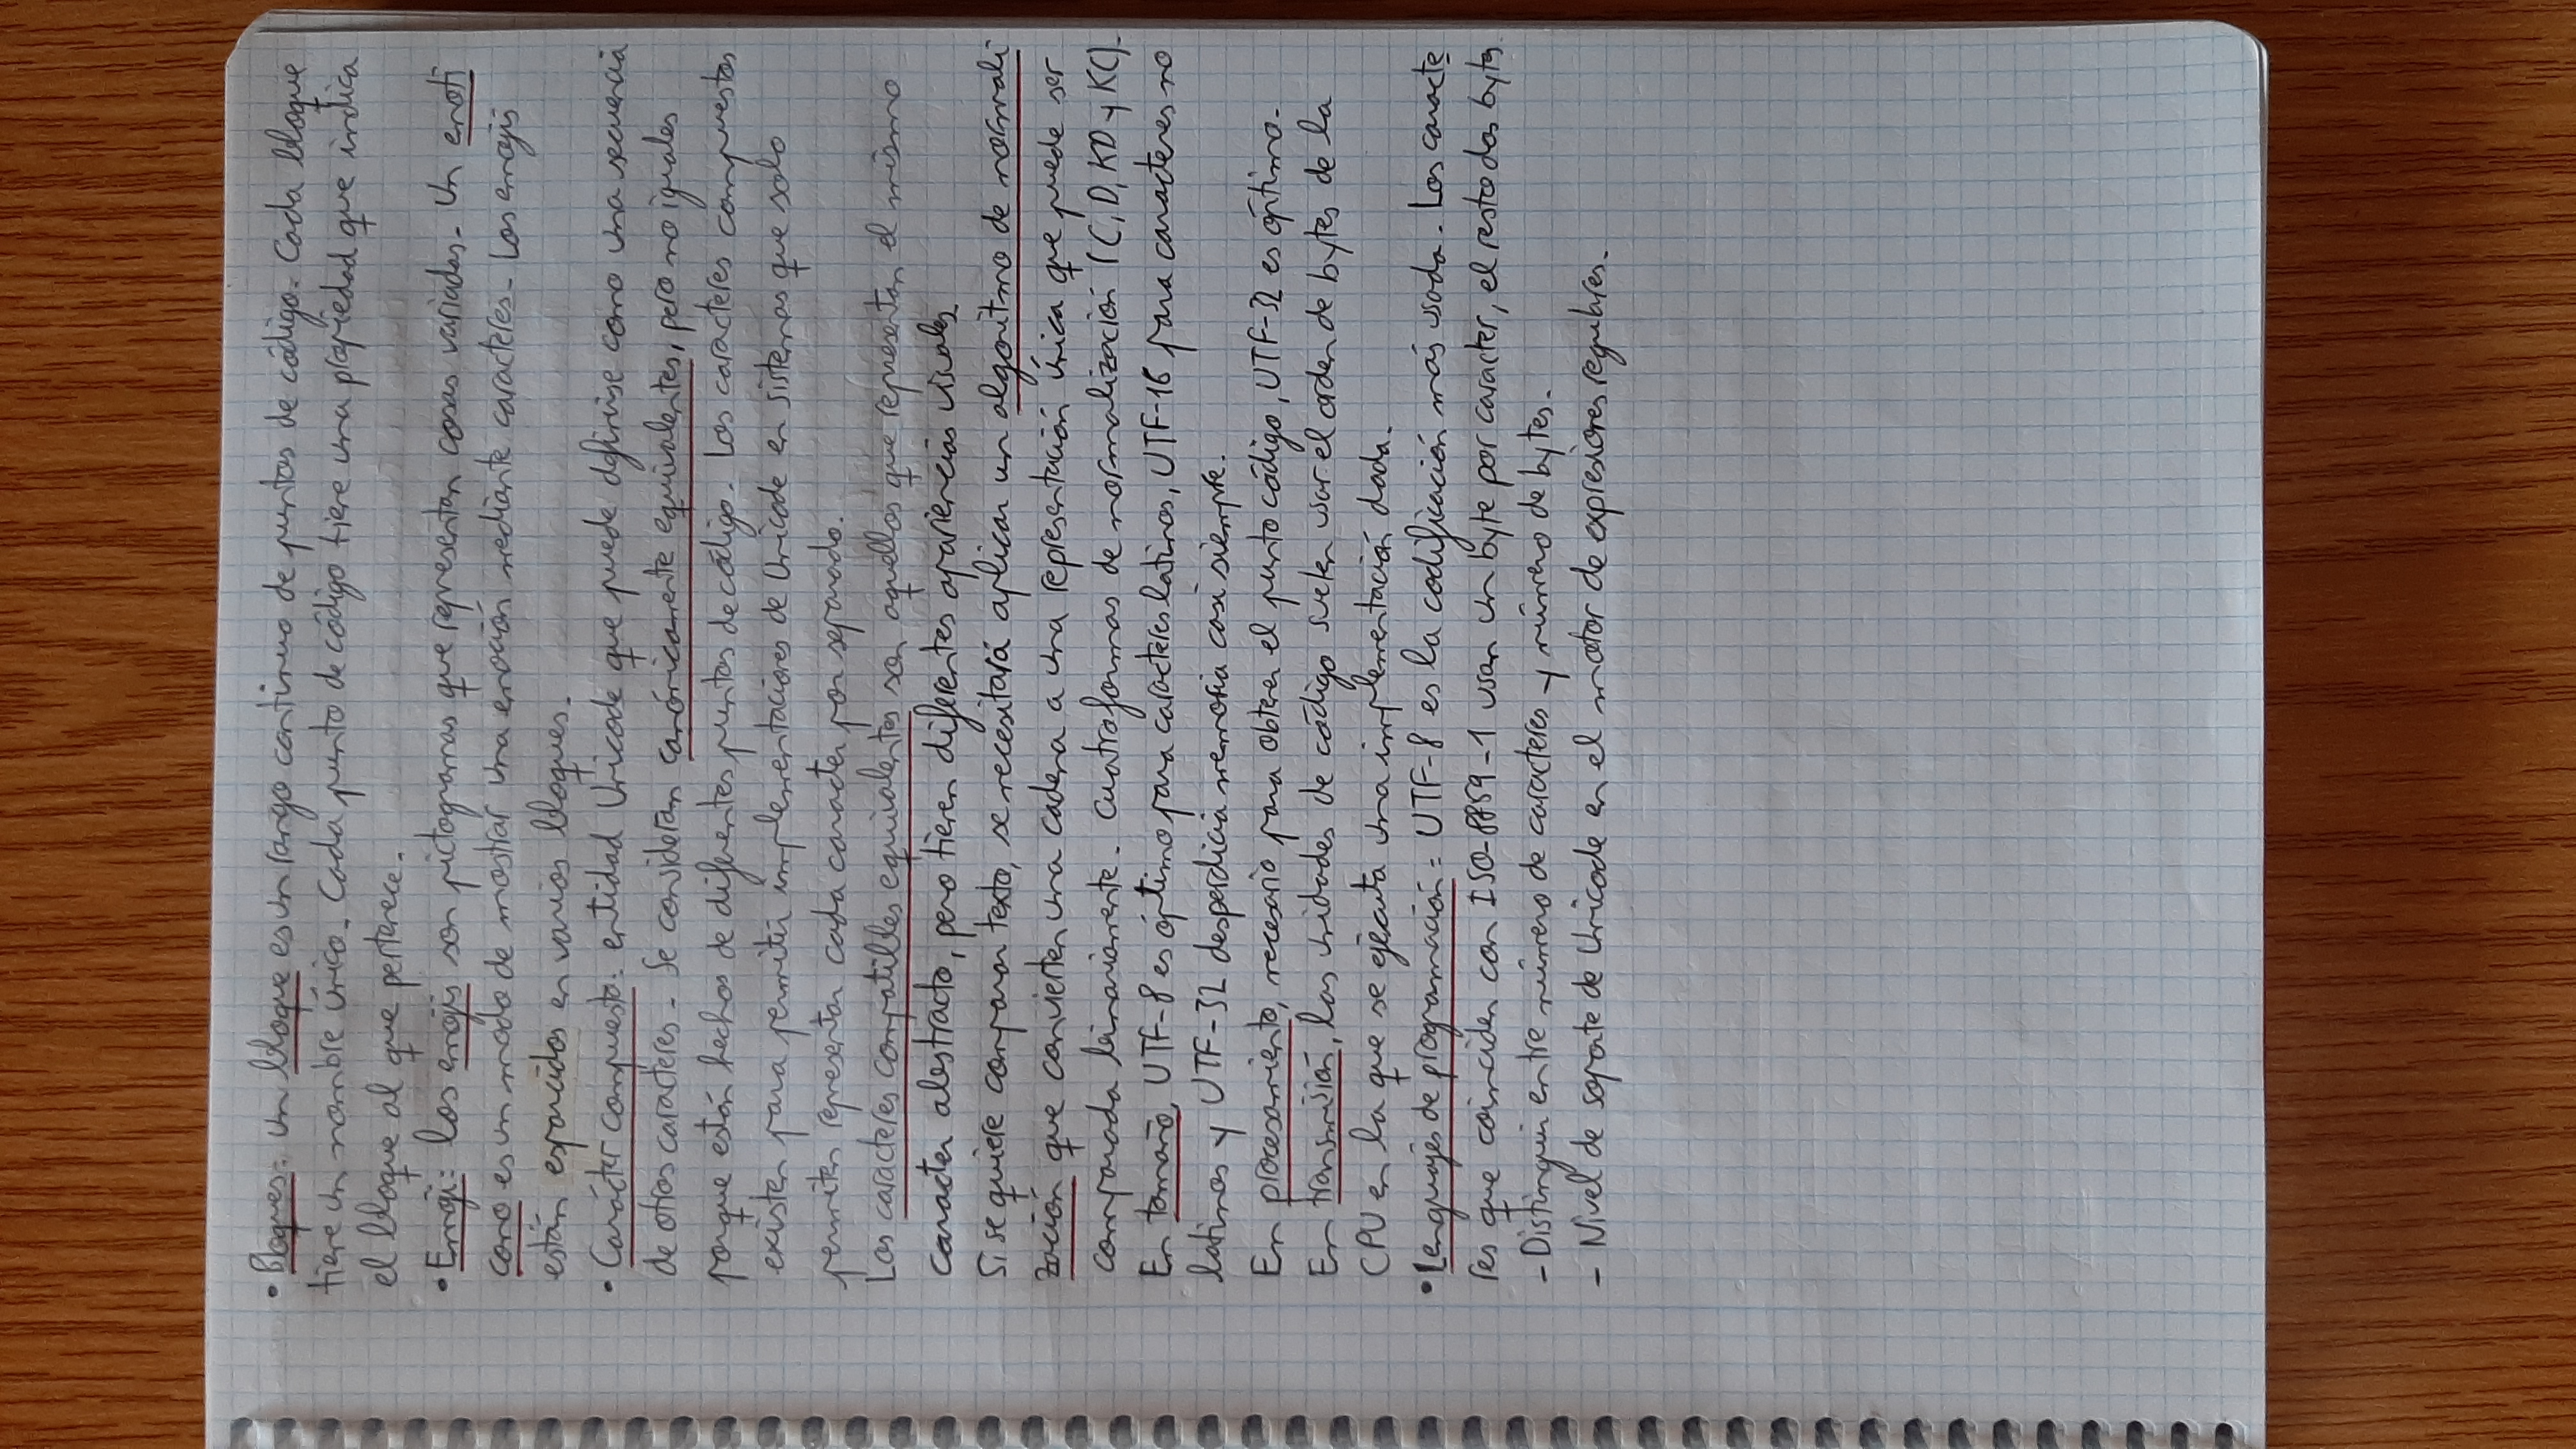 • Bloques: un bloque es un rango continuo de puntos de código. Cada bloque
tiene un nombre único. Cada punto de código tiene una propiedad que indica
el bloque al que pertenece.
• Emoji: los emojis son pictogramas que representan cosas variadas. Un emoti
cono es un modo de mostrar una emoción mediante caracteres. Los emojis
están esparcidos en varios bloques.
• Carácter compuesto: entidad Unicode que puede definirse como una secuencia
de otros caracteres. Se consideran canónicamente equivalentes, pero no iguales
porque están hechos de diferentes puntos de código. Los caracteres compuestos
existen para permitir implementaciones de Unicode en sistemas que solo
permiten representar cada caracter por separado.
Los caracteres compatibles equivalentes son aquellos que representan el mismo
caracter abstracto, pero tienen diferentes apariencias visuales.
Si se quiere comparar texto, se necesitará aplicar un algoritmo de normali
zación que convierten una cadena a una representación única que puede ser
comparada binariamente. Cuatro formas de normalización (C, D, KD y KC).
En tamaño, UTF-8 es óptimo para caracteres latinos, UTF-16 para caracteres no
latinos y UTF-32 desperdicia memoria casi siempre.
En procesamiento, necesario para obtener el punto código, UTF-32 es óptimo.
En transmisión, las unidades de código suelen usar el orden de bytes de la
CPU en la que se ejecuta una implementación dada.
• Lenguajes de programación: UTF-8 es la codificación más usada. Los caracte
res que coinciden con ISO-8859-1 usan un byte por caracter, el resto dos bytes.
- Distinguir entre número de caracteres y número de bytes.
- Nivel de soporte de Unicode en el motor de expresiones regulares.